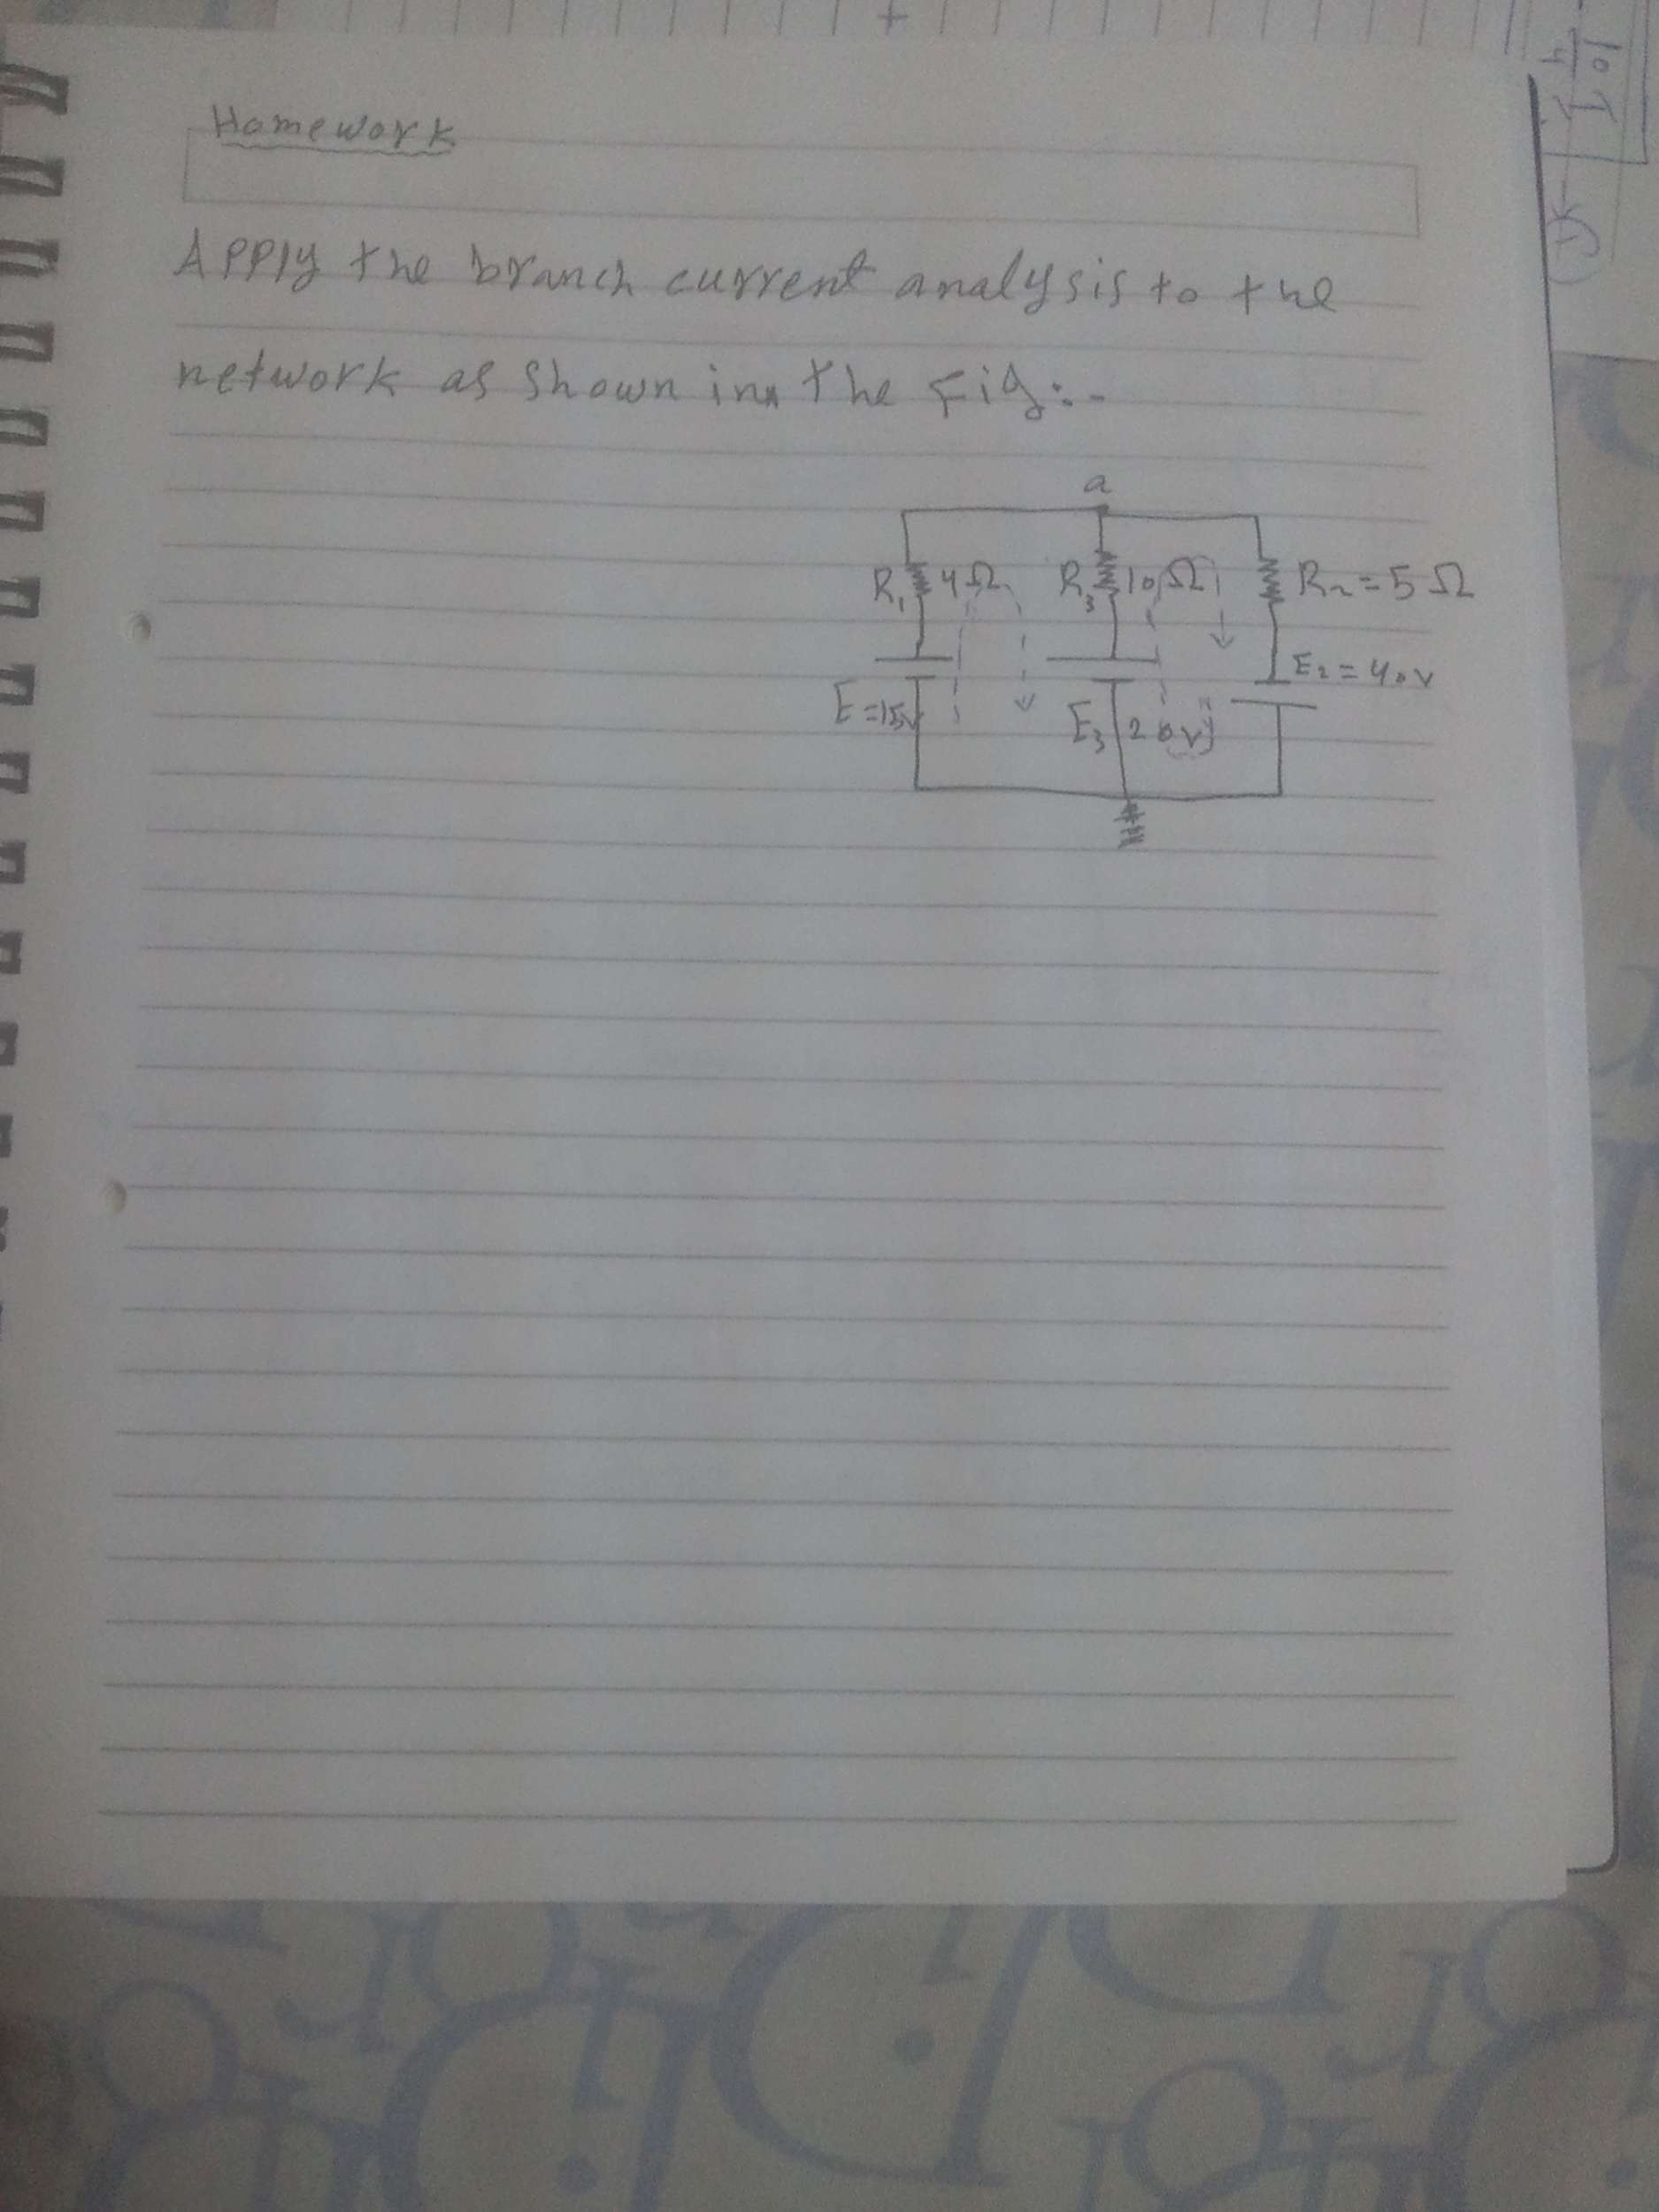 Homework
Apply the branch current analysis to the
network as shown in the Fig:-
a
R₁ 4Ω R₃ 10Ω R₂ = 5 Ω
E₂ = 40v
E = 15v E₃ 20v